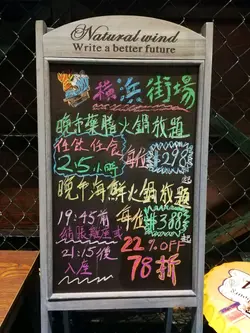 Natural wind
Write a better future
橫浜街場
晚市藥膳火鍋放題
任飲任食 每位$298起
2.5小時
晚市海鮮火鍋放題
19:45前 每位$388起
結賬離座或 22%OFF
21:15後
入座 78折